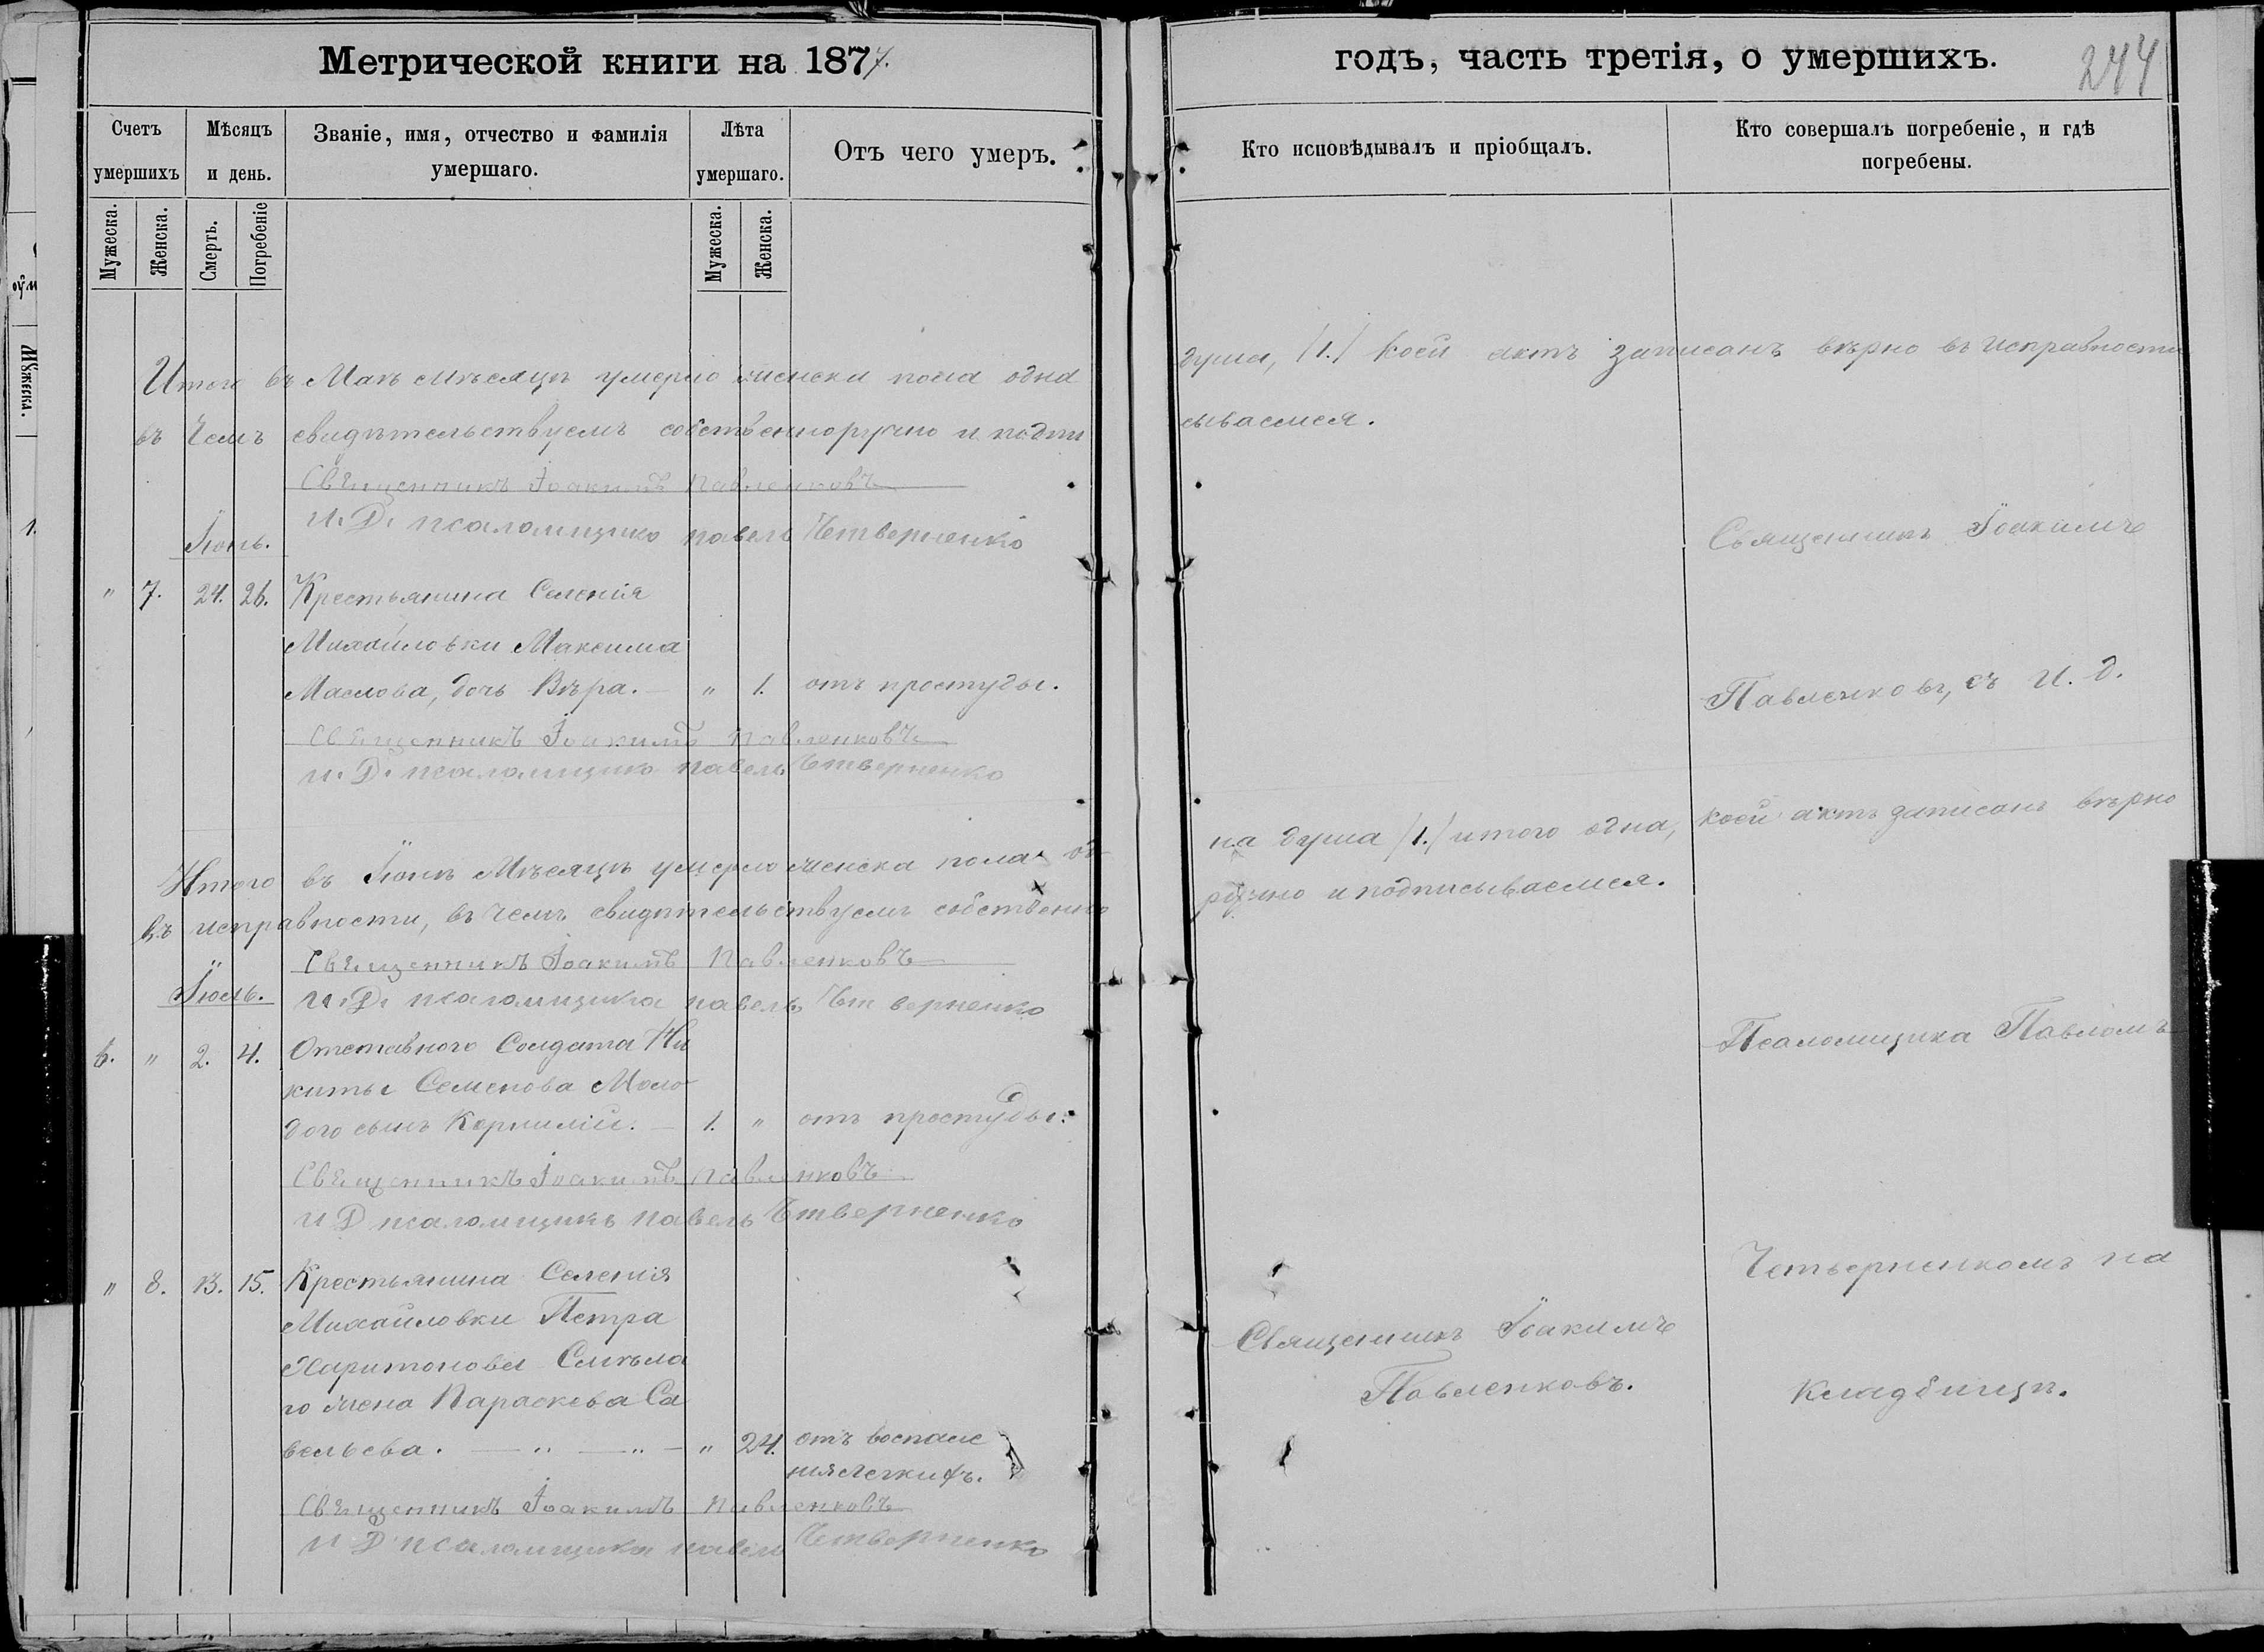 Метрической книги на 1877.
годъ, часть третія, о умершихъ.
244
Счетъ умершихъ
Мѣсяцъ и день.
Званіе, имя, отчество и фамилія умершаго.
Лѣта умершаго.
Отъ чего умеръ.
Кто исповѣдывалъ и пріобщалъ.
Кто совершалъ погребеніе, и гдѣ погребены.
Мужеска.
Женска.
Смерть.
Погребеніе
Мужеска.
Женска.
Итого въ Маѣ мѣсяцѣ умерло женска пола одна душа, /1./ коей актъ записанъ вѣрно въ исправности
въ чемъ свидѣтельствуемъ собственноручно и подпи сываемся.
Священникъ Іоакимъ Павленковъ
И. Д. псаломщика павелъ Четверненко
Іюнь.
" 7. 24. 26. Крестьянина Селенія
Михайловки Максима
Маслова, дочь Вѣра. — " 1. отъ простуды.
Священникъ Іоакимъ Павленковъ
и. Д. псаломщика павелъ Четверненко
Итого въ Іюнѣ Мѣсяцѣ умерло женска пола од на душа /1./ итого одна, коей актъ записанъ вѣрно
въ исправности, въ чемъ свидѣтельствуемъ собственно ручно и подписываемся.
Священникъ Іоакимъ Павленковъ
Іюль.
И. Д. псаломщика павелъ Четверненко
6. " 2. 4. Отставного Солдата Ни
киты Семенова Моло
дого сынъ Корнилій. — 1. " отъ простуды.
Священникъ Іоакимъ Павленковъ
И Д псаломщикъ павелъ Четверненко
" 8. 13. 15. Крестьянина Селенія
Михайловки Петра
Харитонова Смѣла
го жена Параскева Са
вельева. — " — " — " 24. отъ воспале
нія легкихъ.
Священникъ Іоакимъ Павленковъ
И Д псаломщика павелъ Четверненко
Священникъ Іоакимъ
Павленковъ.
Священникъ Іоакимъ
Павленковъ, съ И. д.
Псаломщика Павломъ
Четверненкомъ на
кладбищѣ.
Мужеска.
1.